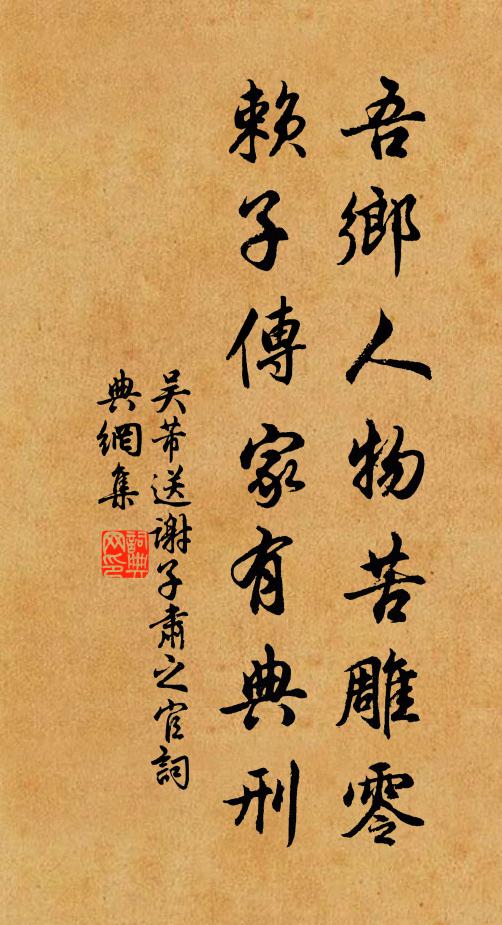 吾鄉人物苦雕零
賴子傳家有典刑
吴芾送謝子肅之官詞
典網集
詞典
网印